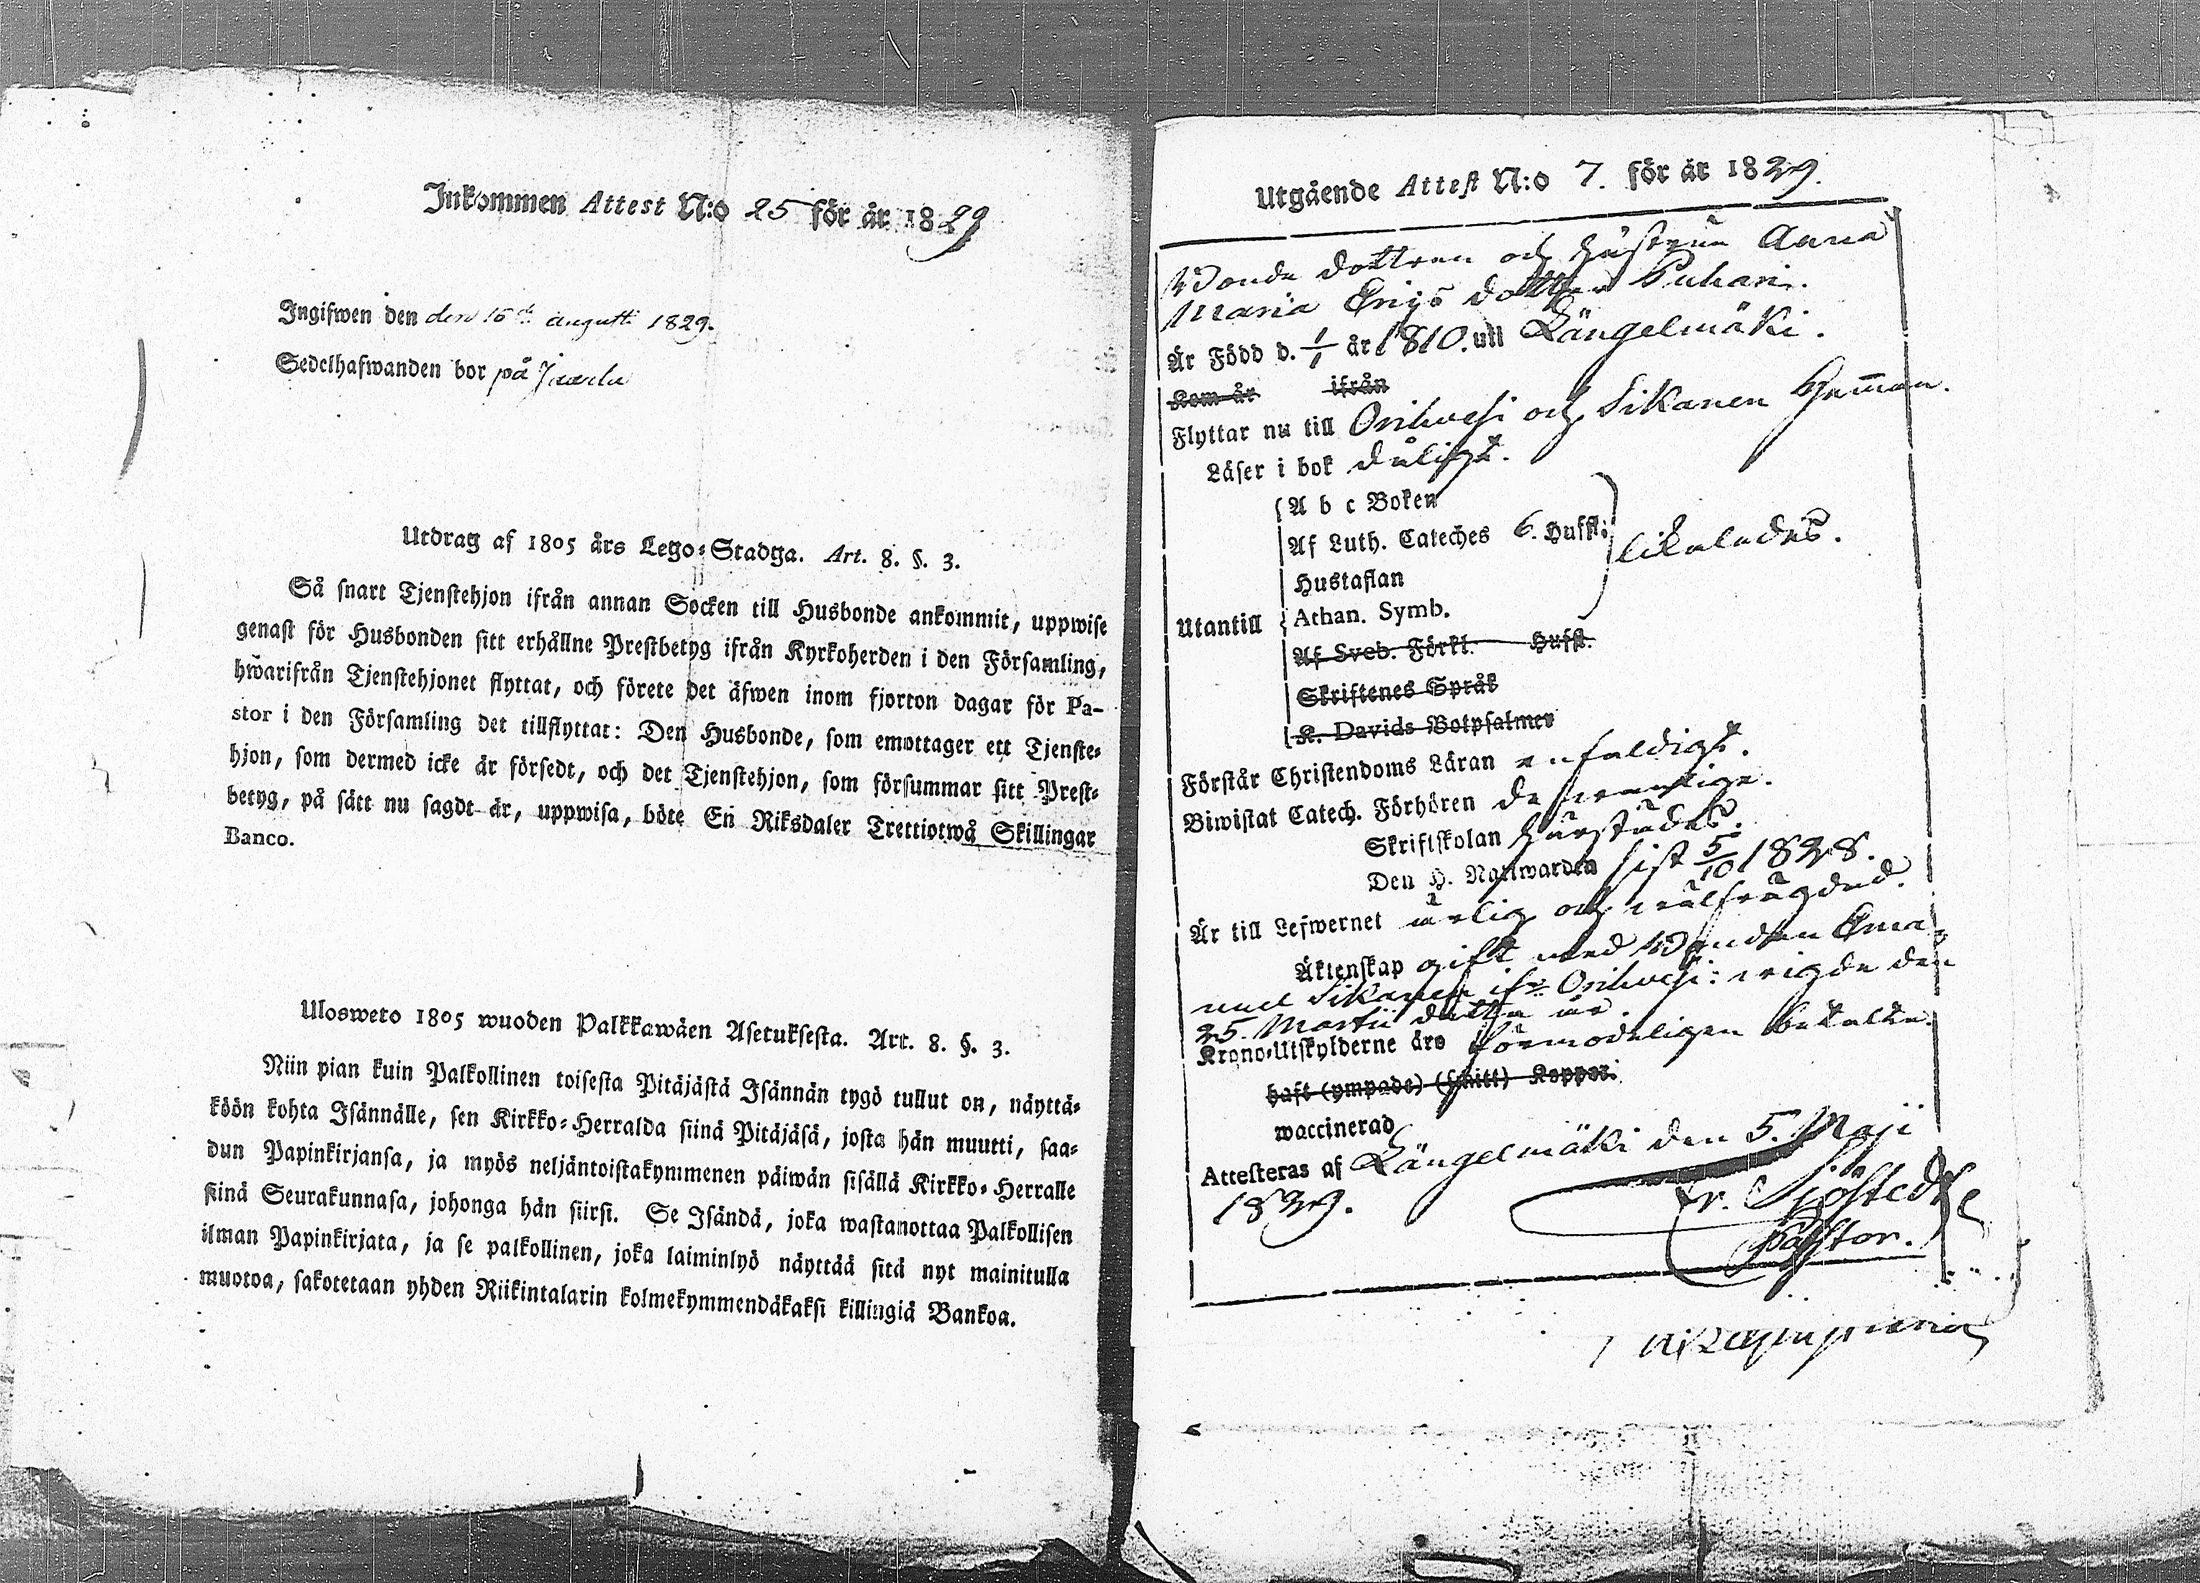 Inkommen Attest N:o 25 för år 1829
Ingifwen den den 16de augusti 1829.
Sedelhafwanden bor på
Utdrag af 1805 års Lego-Stadga. Art. 8. §. 3.
Så snart Tjenstehjon ifrån annan Socken till Husbonde ankommit, uppwise
genast för Husbonden sitt erhållne Prestbetyg ifrån Kyrkoherden i den Församling,
hwarifrån Tjenstehjonet flyttat, och förete det äfwen inom fjorton dagar för Pa-
stor i den Församling det tillflyttat: Den Husbonde, som emottager ett Tjenste-
hjon, som dermed icke är försedt, och det Tjenstehjon, som försummar sitt Prest-
betyg, på sätt nu sagdt är, uppwisa, böte En Riksdaler Trettiotwå Skillingar
Banco.
Ulosweto 1805 wuoden Palkkawäen Asetuksesta. Art. 8. §. 3.
Niin pian kuin Palkollinen toisesta Pitäjästä Isännän tygö tullut on, näyttä-
köön kohta Isännälle, sen Kirkko-Herralda siinä Pitäjäsä, josta hän muutti, saa-
dun Papinkirjansa, ja myös neljäntoistakymmenen päiwän sisällä Kirkko-Herralle
siinä Seurakunnasa, johonga hän siirsi. Se Isändä, joka wastanottaa Palkollisen
ilman Papinkirjata, ja se palkollinen, joka laiminlyö näyttää sitä nyt mainitulla
muotoa, sakotetaan yhden Riikintalarin kolmekymmendäkaksi killingiä Bankoa.
Utgående Attest N:o 7. för år 1829.
Bonde dottren och hustrun Anna
Maria Erigs dotter Puhari.
Är Född d. 1/1 år 1810. uti Längelmäki.
Kom år ifrån
Flyttar nu till Orihvesi och Sikanen hemman.
Läser i bok dåligt.
A b c Boken
Af Luth. Cateches 6. Hufst:
likaledes.
Hustaflan
Utantill Athan. Symb.
Af Sveb. Förkl. Hufst.
Skriftenes Språk
K. Davids Botpsalmer
Förstår Christendoms Läran enfaldigt.
Biwistat Catech. Förhören de wanlige.
Skriftskolan härstädes.
Den H. Nattwarden sist 5/10 1828.
Är till Lefwernet ärlig och wälfrägdad.
Äktenskap gift med Bonden Ema-
nuel Sikanen ifr. Orihvesi: wigde den
25. Martii detta år.
Krono-Utskylderne äro förmodeligen betalte.
haft (ympade) (smitt) Koppor.
waccinerad
Attesteras af Längelmäki den 5. Maji
1829.
Er. Sjöstedt
Pastor.